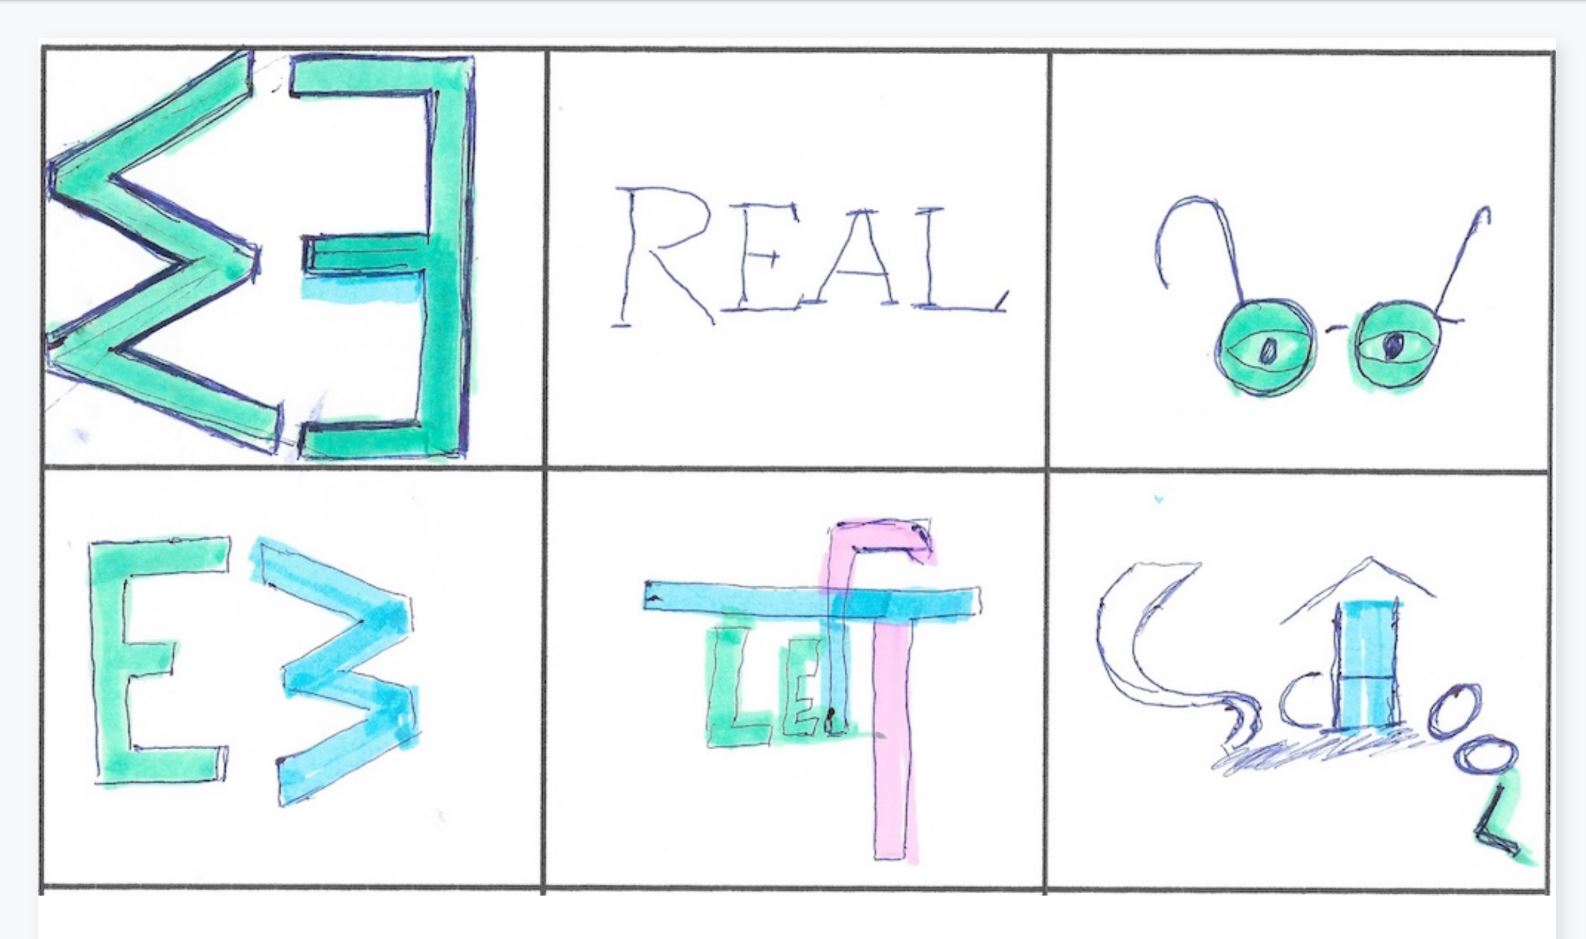 REAL
LEfT
SCHOOL